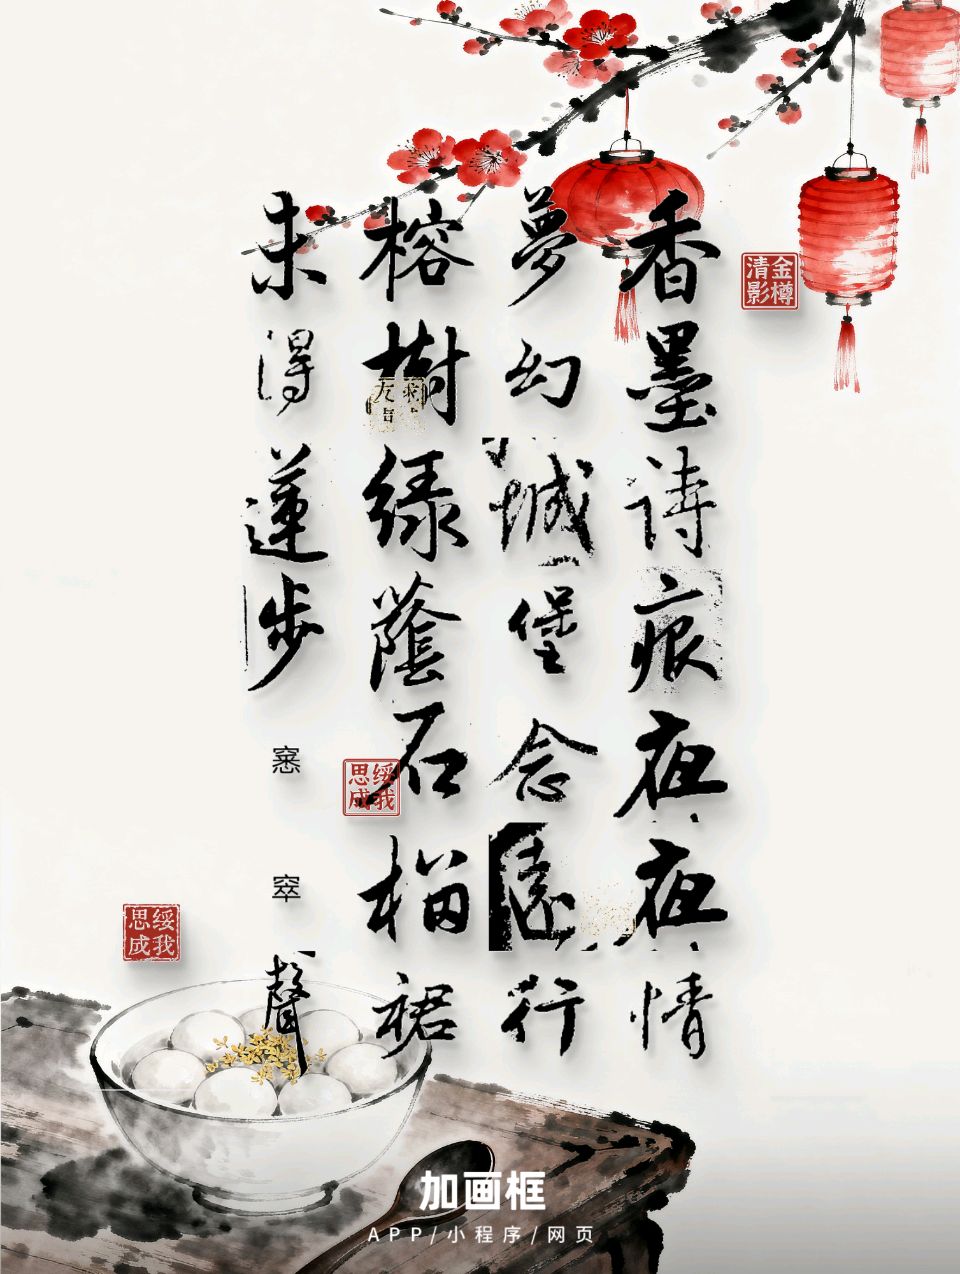 香墨詩痕夜夜情
夢幻城堡念遠行
榕樹緑蔭石榴裙
未得蓮步窸窣聲
金樽清影
绥我思成
绥我思成
加画框
APP/小程序/网页